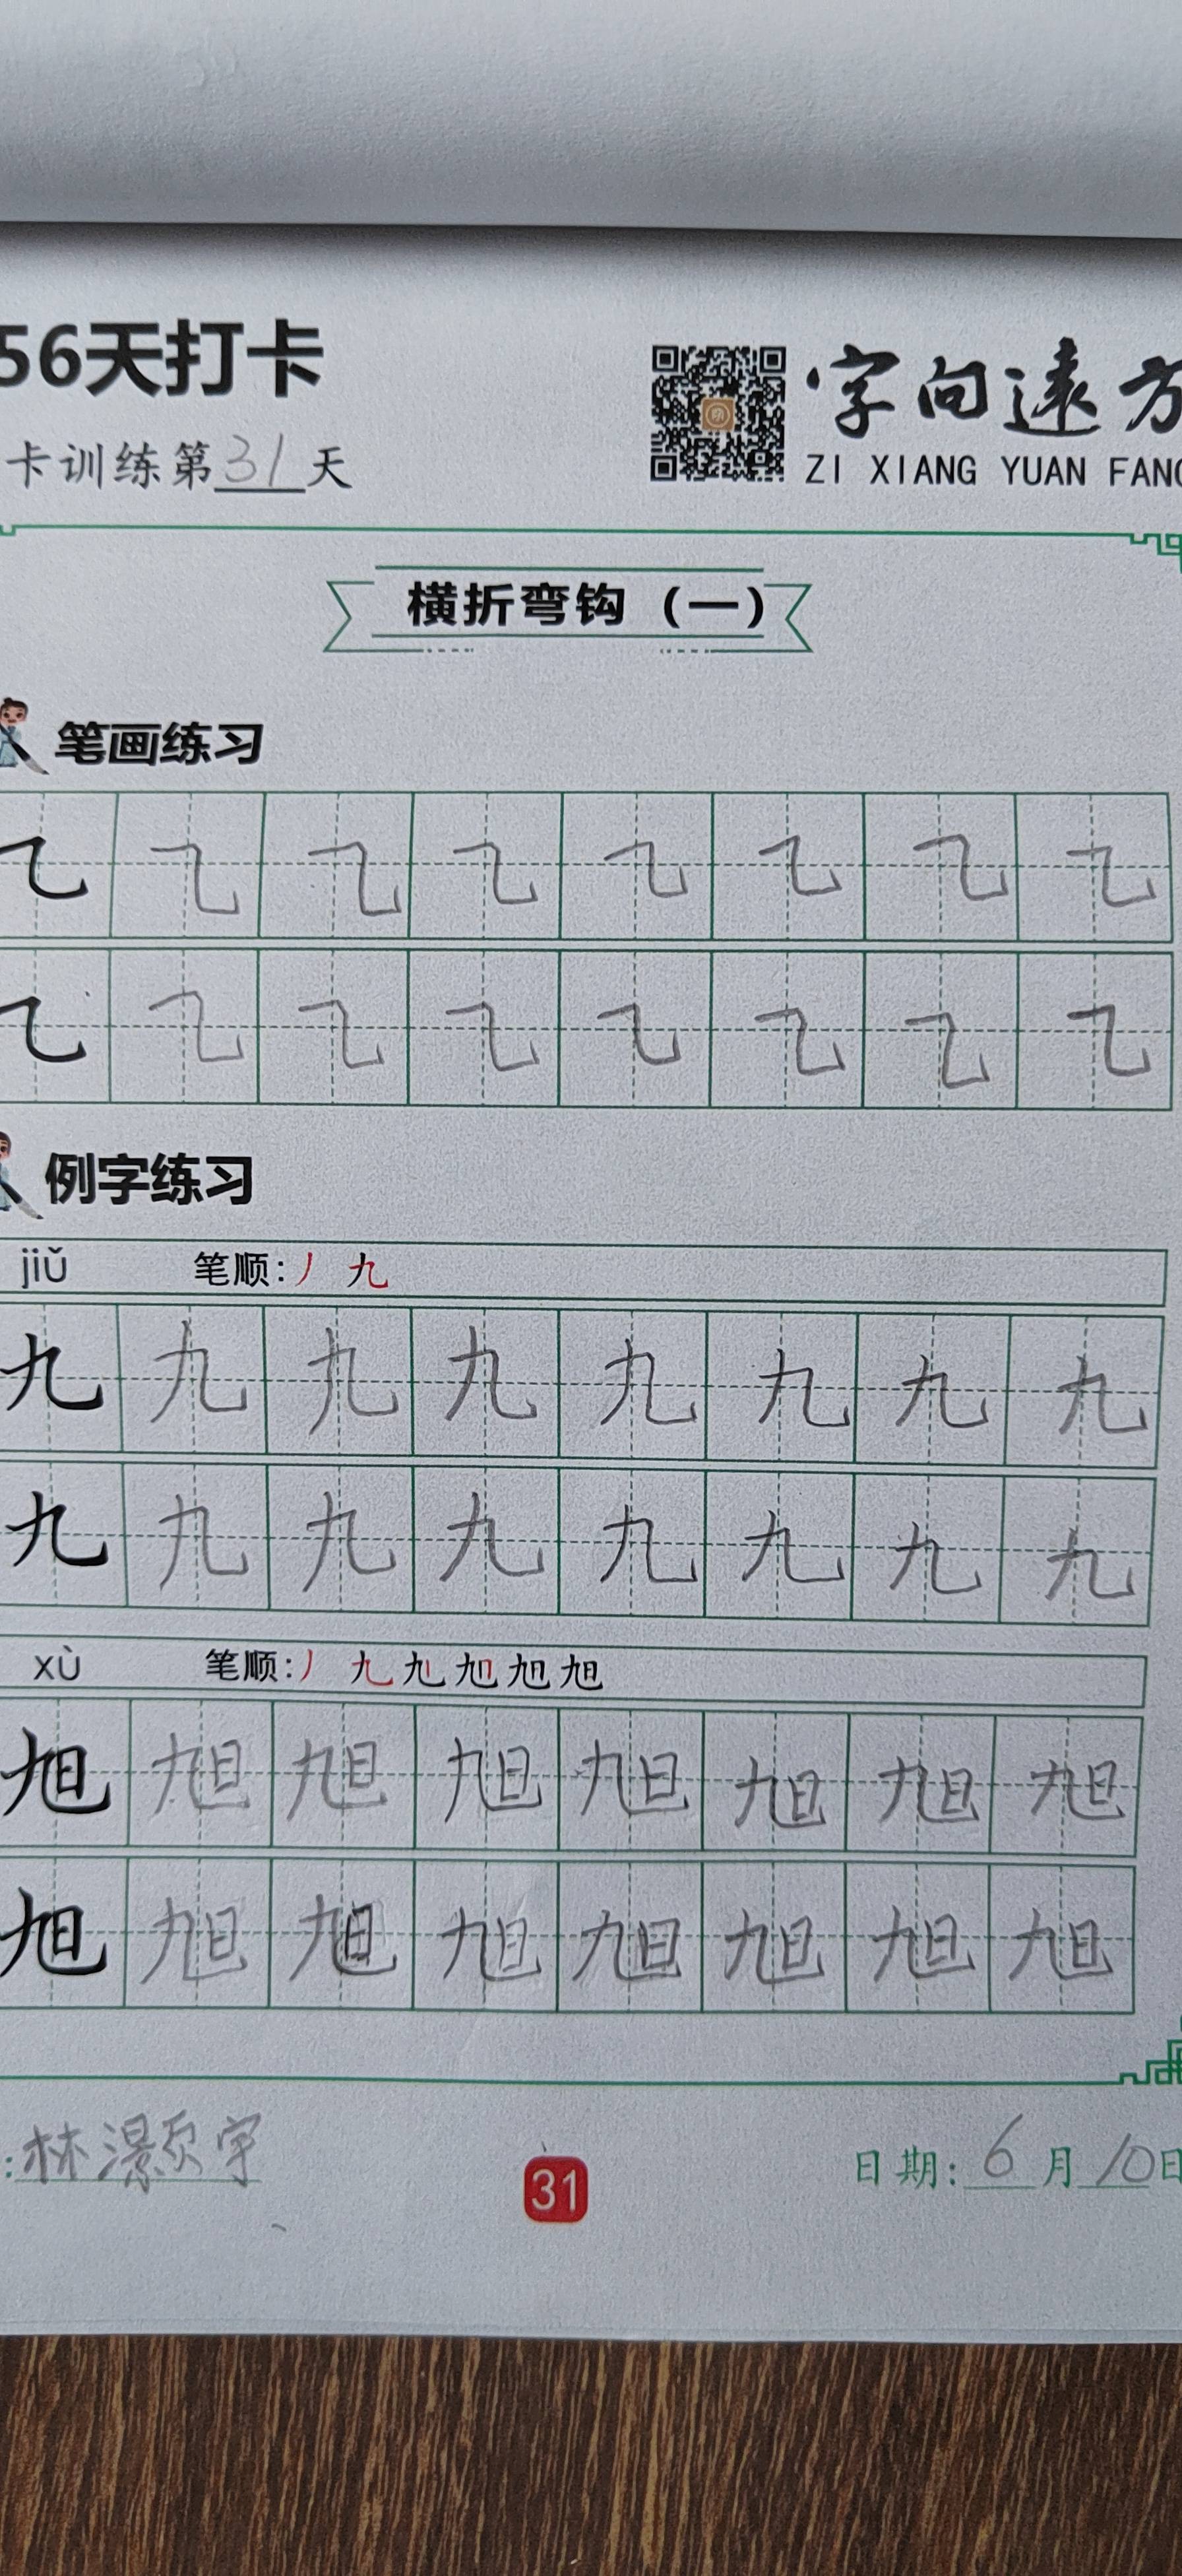 56天打卡
卡训练第31天
字向遠方
ZI XIANG YUAN FANG
横折弯钩（一）
笔画练习
㇈ ㇈ ㇈ ㇈ ㇈ ㇈ ㇈ ㇈
㇈ ㇈ ㇈ ㇈ ㇈ ㇈ ㇈ ㇈
例字练习
jiǔ 笔顺:丿 九
九 九 九 九 九 九 九 九
九 九 九 九 九 九 九 九
xù 笔顺:丿 九 旭 旭
旭 旭 旭 旭 旭 旭 旭 旭
旭 旭 旭 旭 旭 旭 旭 旭
:林灏宇
31
日期:6月10日